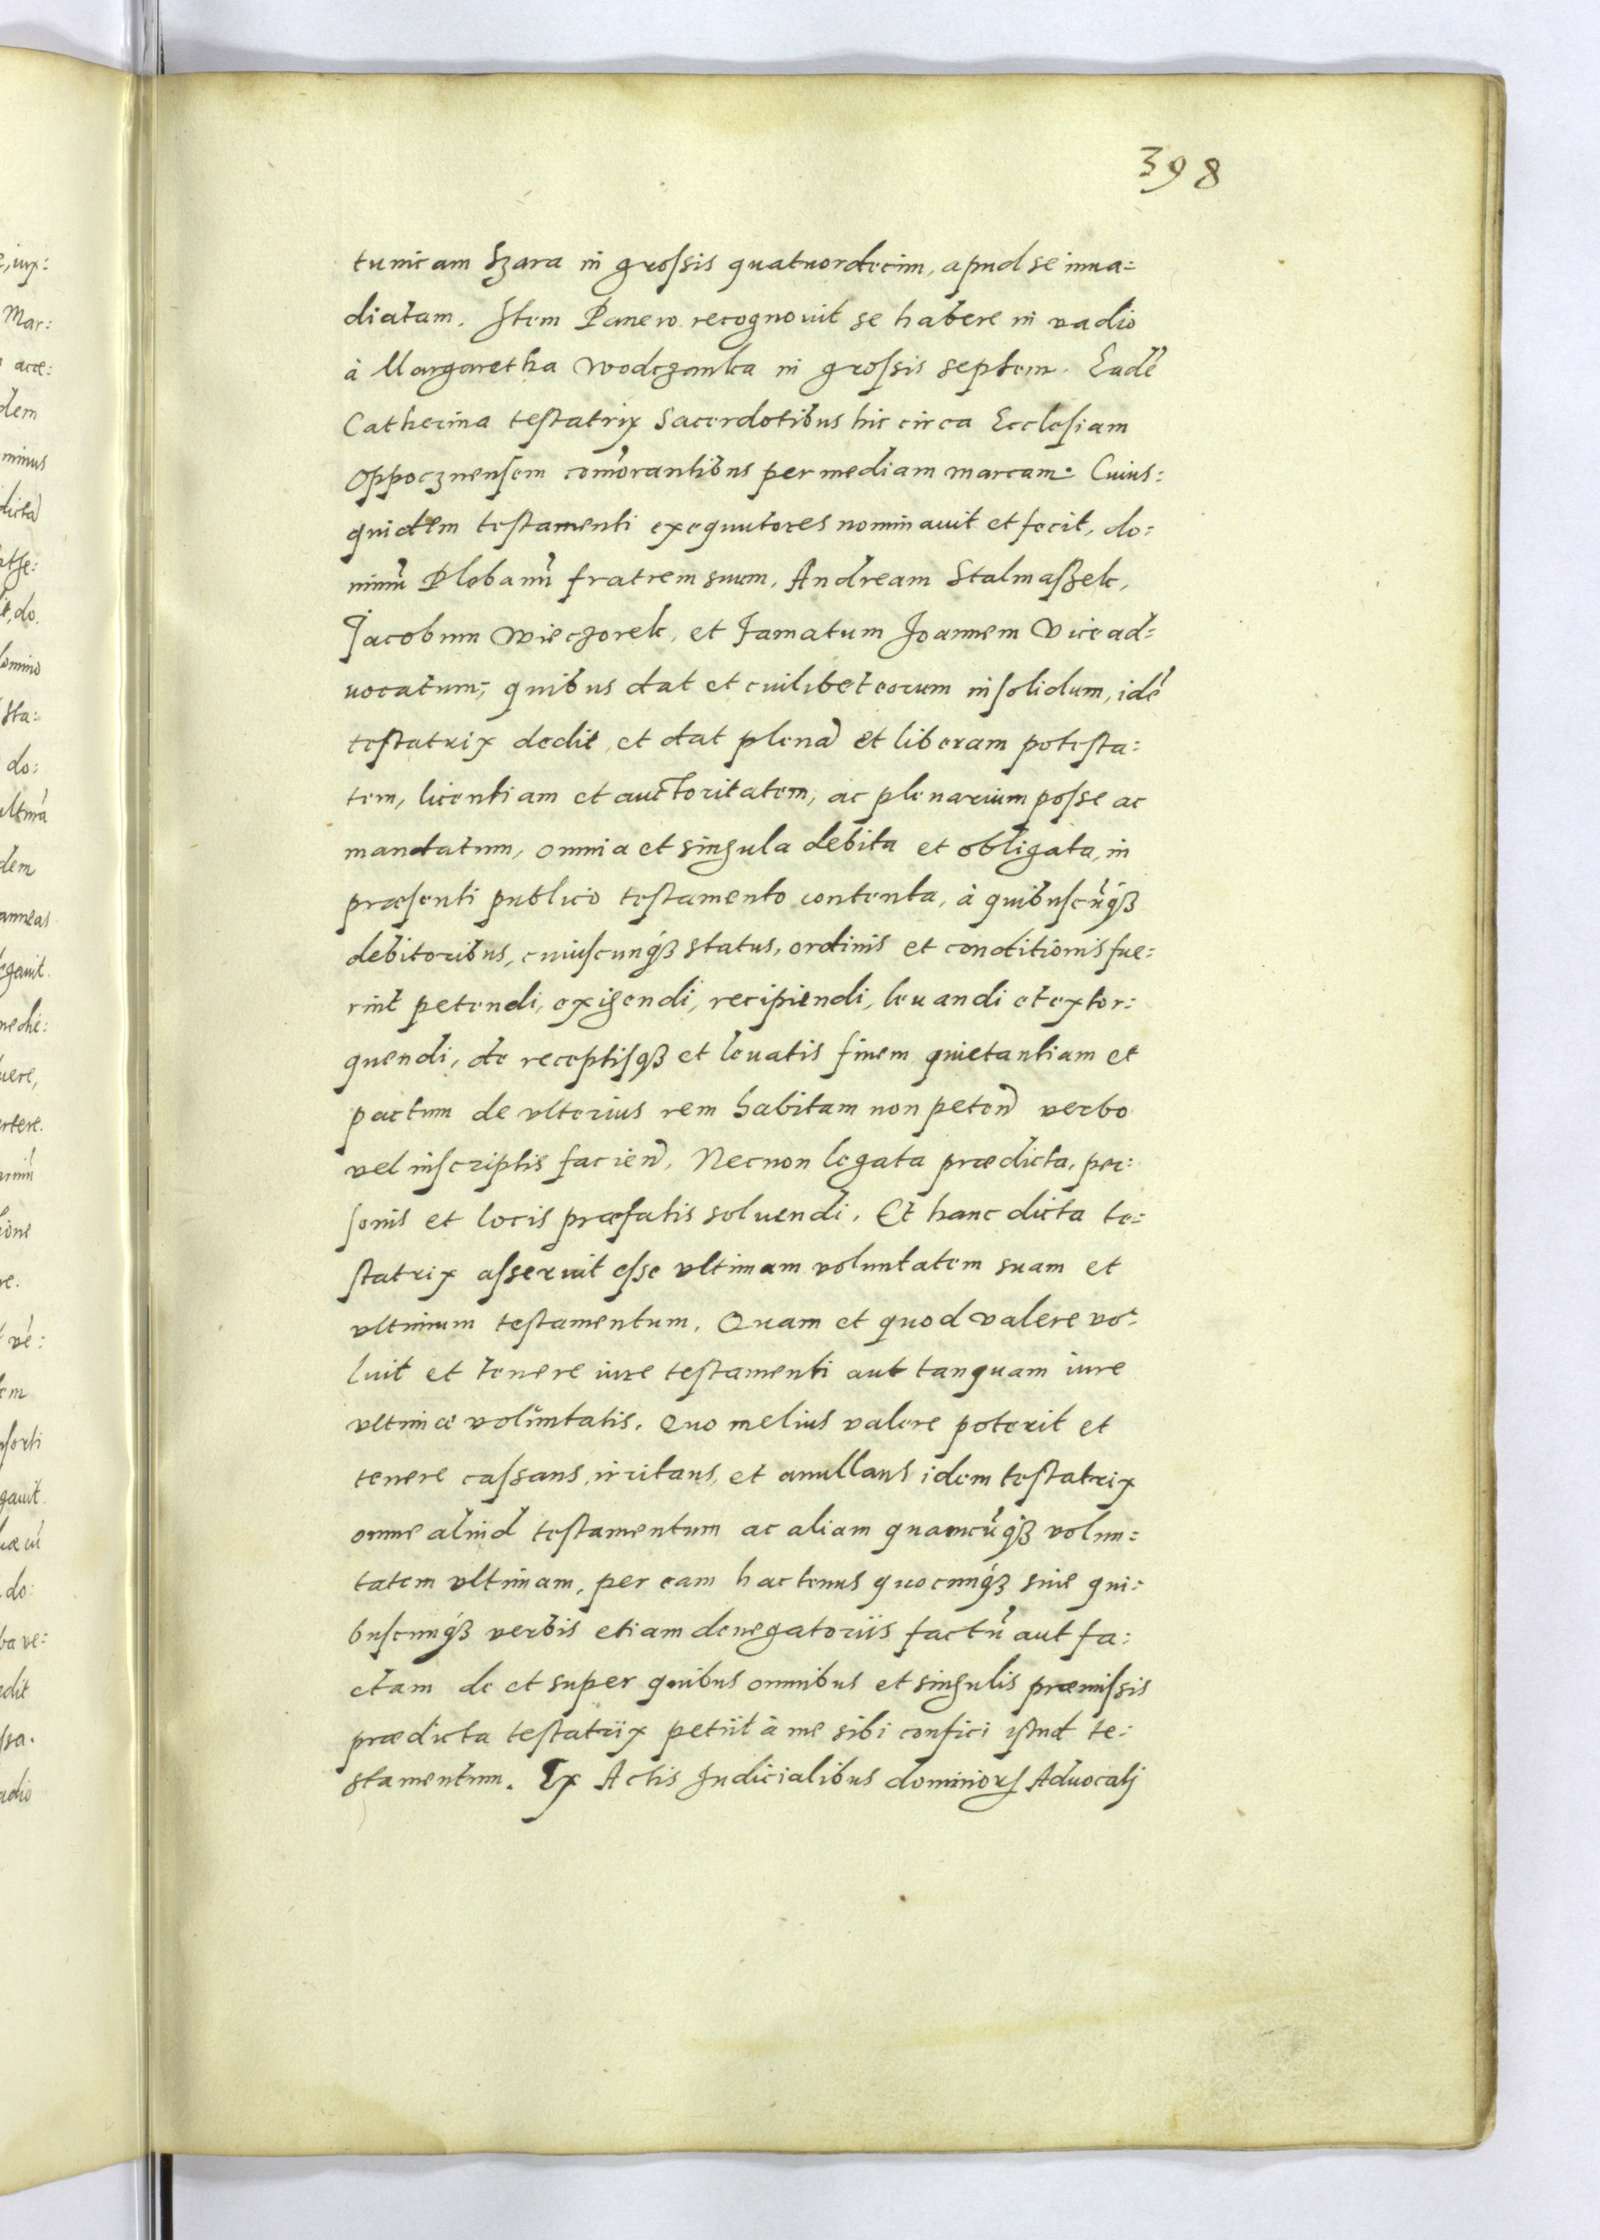 398
tunicam Szara in grossis quatuordecim, apud se inua=
diatam. Item Panew recognouit se habere in vadio
à Margaretha Wodczanka in grossis septem. Eadẽ
Catherina testatrix Sacerdotibus hic circa Ecclesiam
Oppocznensem com̃orantibus per mediam marcam. Cuius=
quidem testamenti exequutores nominauit et fecit, do=
minũ Plebanũ fratrem suum, Andream Stalmaszek,
Jacobum Wieczorek, et Famatum Joannem Vicead=
uocatum; quibus dat et cuilibet eorum insolidum, idẽ
testatrix dedit, et dat plenã et liberam potesta=
tem, licentiam et auctoritatem, ac plenarium posse ac
mandatum, omnia et singula debita et obligata, in
præsenti publico testamento contenta, à quibuscũq3
debitoribus, cuiuscunq3 status, ordinis et conditionis fue=
rint petendi, exigendi, recipiendi, leuandi et extor=
quendi, de receptisq3 et leuatis finem quietantiam et
pactum de vlterius rem habitam non peteñ verbo
vel inscriptis facieñ, Necnon legata prædicta, per=
sonis et locis præfatis soluendi. Et hanc dicta te=
statrix asseruit esse vltimam voluntatem suam et
vltimum testamentum. Quam et quod valere vo=
luit et tenere iure testamenti aut tanquam iure
vltimæ voluntatis. Quo melius valere poterit et
tenere cassans, irritans, et anullans idem testatrix
omne aliud testamentum ac aliam quamcũq3 volun=
tatem vltimam, per eam hactenus quocunq3 siue qui=
buscunq3 verbis etiam denegatoriis factũ aut fa=
ctam de et super quibus omnibus et singulis præmissis
prædicta testatrix petiit à me sibi confici istud te=
stamentum. Ex Actis Judicialibus dominorꝝ Aduocatj